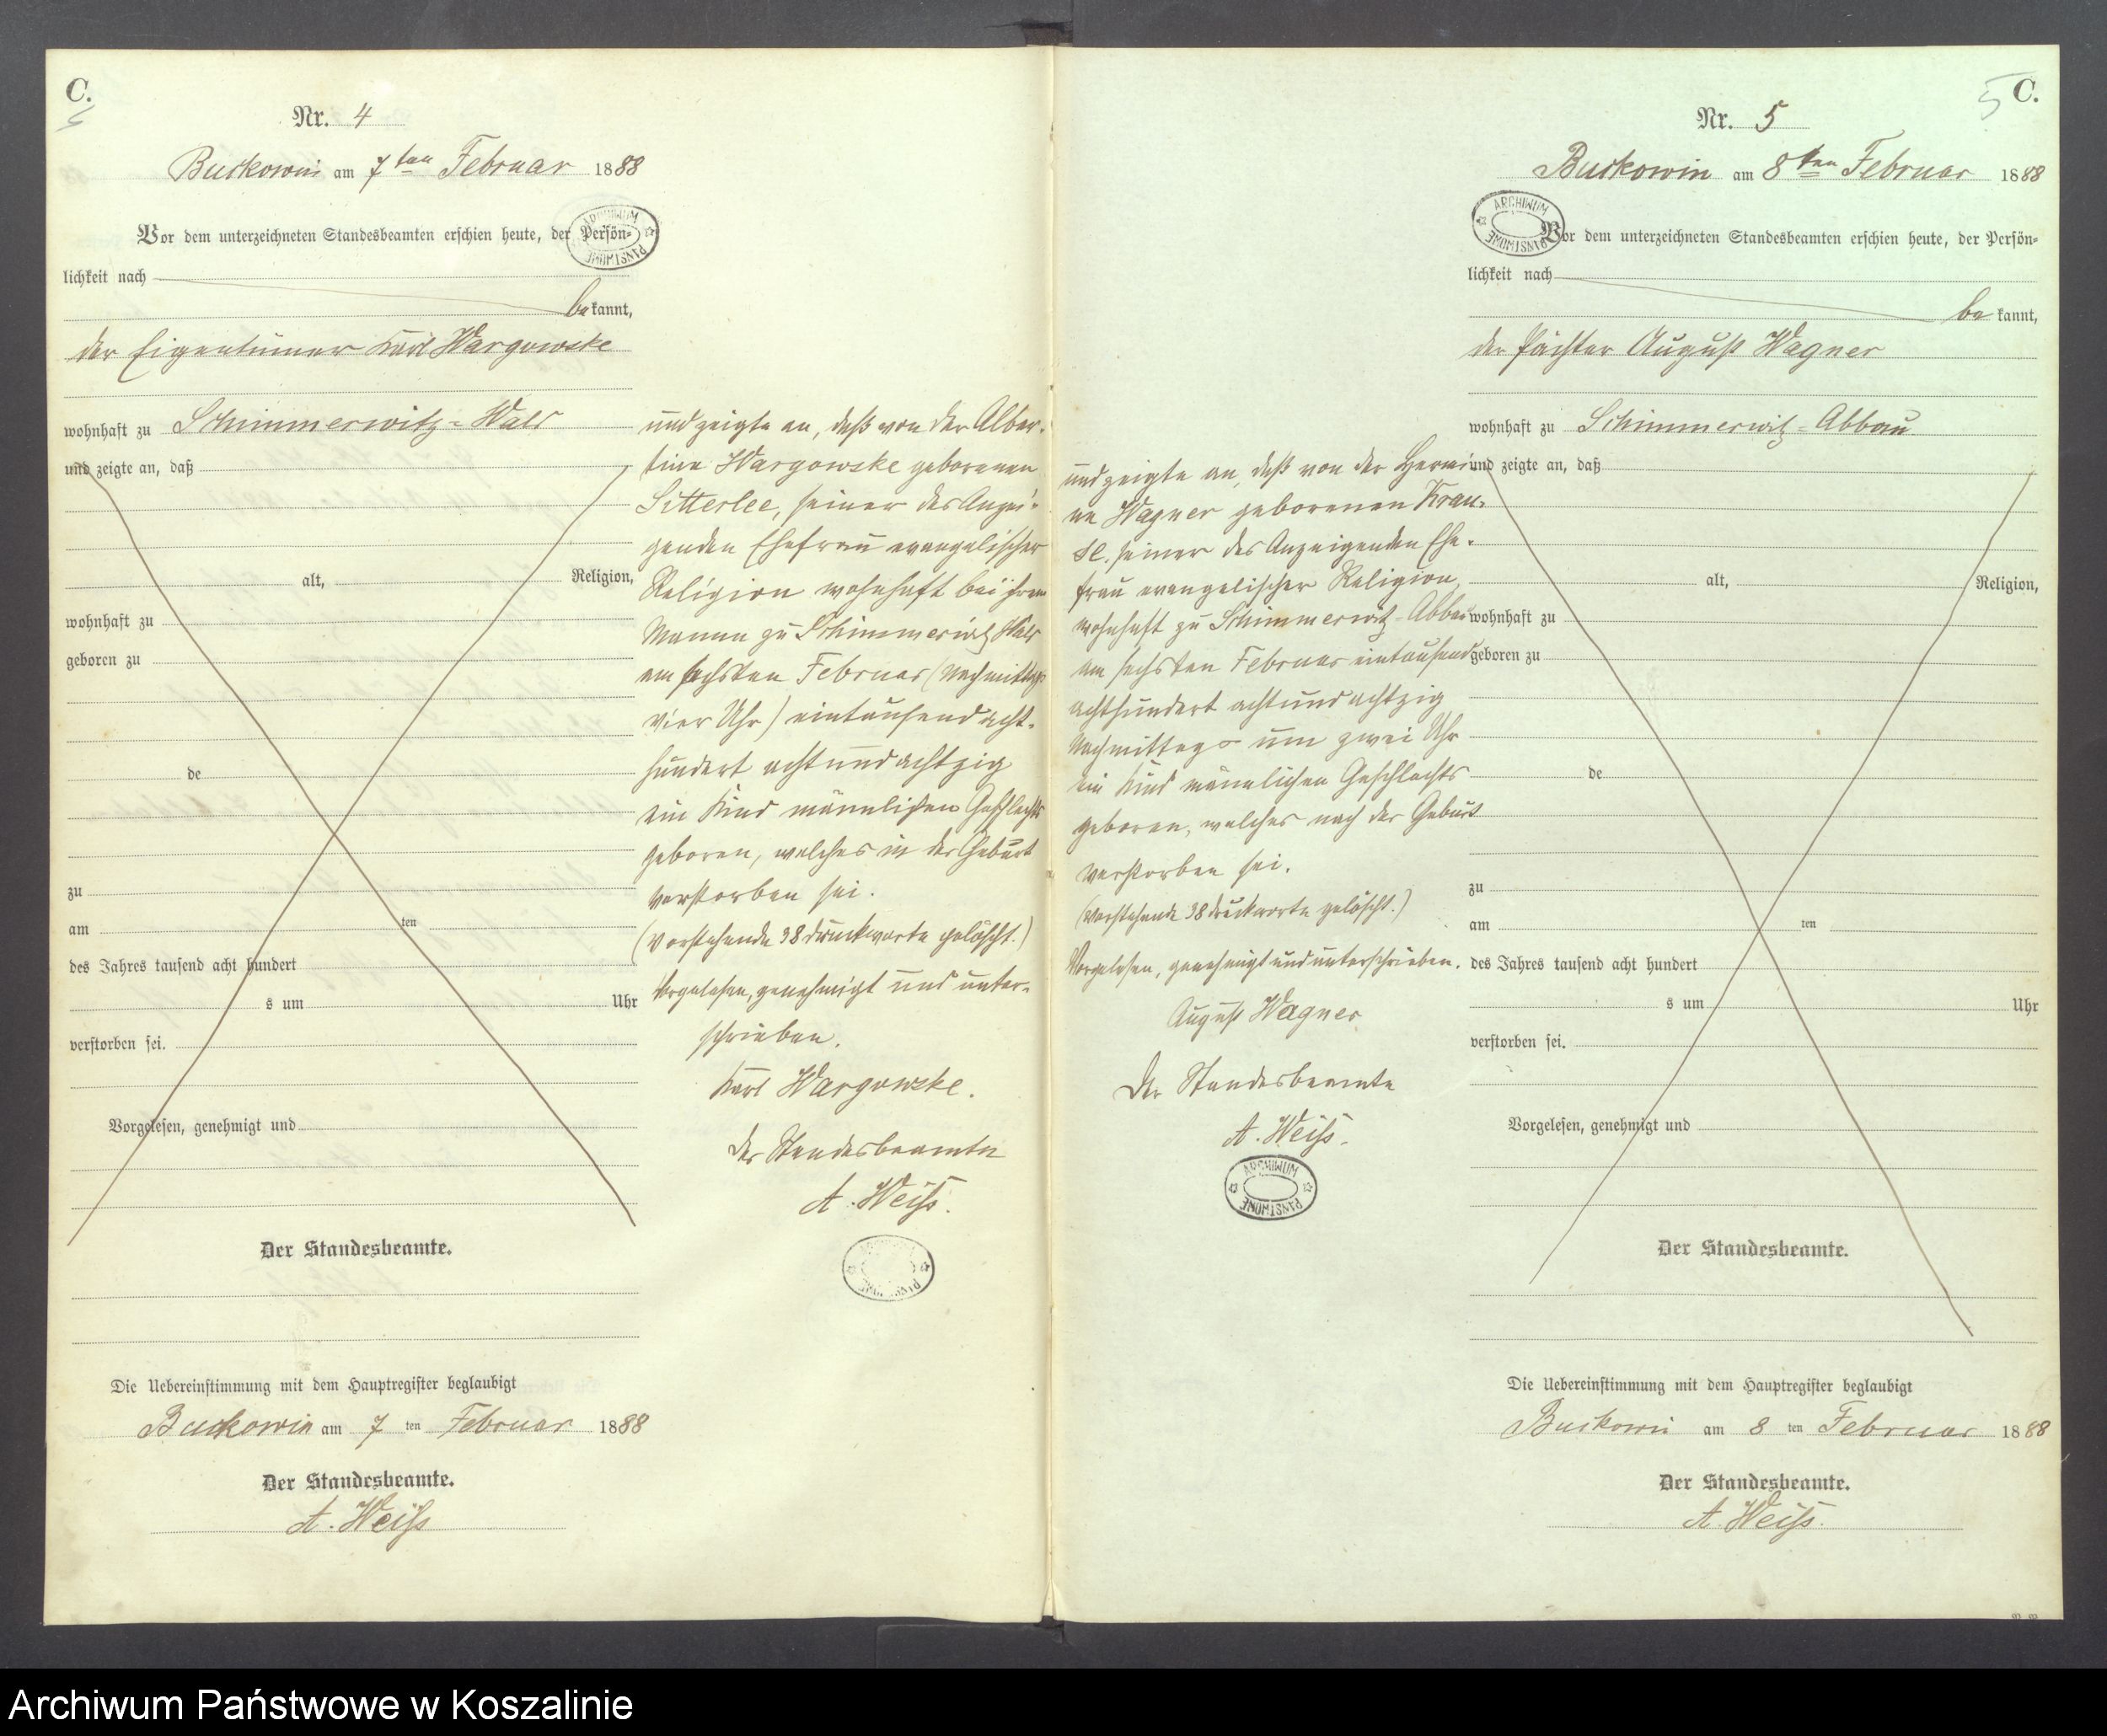 C.
Nr. 4
Buckowin am 7ten Februar 1888
Vor dem unterzeichneten Standesbeamten erschien heute, der Persön-
lichkeit nach
bekannt,
der Eigentümer Karl Wargowske
wohnhaft zu Schimmerwitz-Wald
und zeigte an, daß
alt, Religion,
wohnhaft zu
geboren zu
de
zu
am ten
des Jahres tausend acht hundert
s um Uhr
verstorben sei.
Vorgelesen, genehmigt und
Der Standesbeamte.
Die Uebereinstimmung mit dem Hauptregister beglaubigt
Buckowin am 7 ten Februar 1888
Der Standesbeamte.
A. Weiß
und zeigte an, daß von der Alber-
tine Wargowske geborenen
Sitterlee, seiner des Anzei-
genden Ehefrau evangelischer
Religion wohnhaft bei ihrem
Manne zu Schimmerwitz Wald
am sechsten Februar (Nachmittags
vier Uhr) eintausend acht-
hundert achtundachtzig
ein Kind männlichen Geschlechts
geboren, welches in der Geburt
verstorben sei.
(Vorstehende 38 Druckworte gelöscht.)
Vorgelesen, genehmigt und unter-
schrieben.
Karl Wargowske.
Der Standesbeamte
A. Weiß.
ARCHIWUM PAŃSTWOWE
C.
5
Nr. 5
Buckowin am 8ten Februar 1888
ARCHIWUM PAŃSTWOWE
Vor dem unterzeichneten Standesbeamten erschien heute, der Persön-
lichkeit nach
bekannt,
der Pächter August Wagner
wohnhaft zu Schimmerwitz-Abbau
und zeigte an, daß
alt, Religion,
wohnhaft zu
geboren zu
de
zu
am ten
des Jahres tausend acht hundert
s um Uhr
verstorben sei.
Vorgelesen, genehmigt und
Der Standesbeamte.
Die Uebereinstimmung mit dem Hauptregister beglaubigt
Buckowin am 8 ten Februar 1888
Der Standesbeamte.
A. Weiß.
und zeigte an, daß von der Hermi-
ne Wagner geborenen
seiner des Anzeigenden Ehe-
frau evangelischer Religion,
wohnhaft zu Schimmerwitz-Abbau
am sechsten Februar eintausend
achthundert achtundachtzig
Nachmittags um zwei Uhr
ein Kind männlichen Geschlechts
geboren, welches nach der Geburt
verstorben sei.
(Vorstehende 38 Druckworte gelöscht.)
Vorgelesen, genehmigt und unterschrieben.
August Wagner
Der Standesbeamte
A. Weiß.
ARCHIWUM PAŃSTWOWE
Archiwum Państwowe w Koszalinie